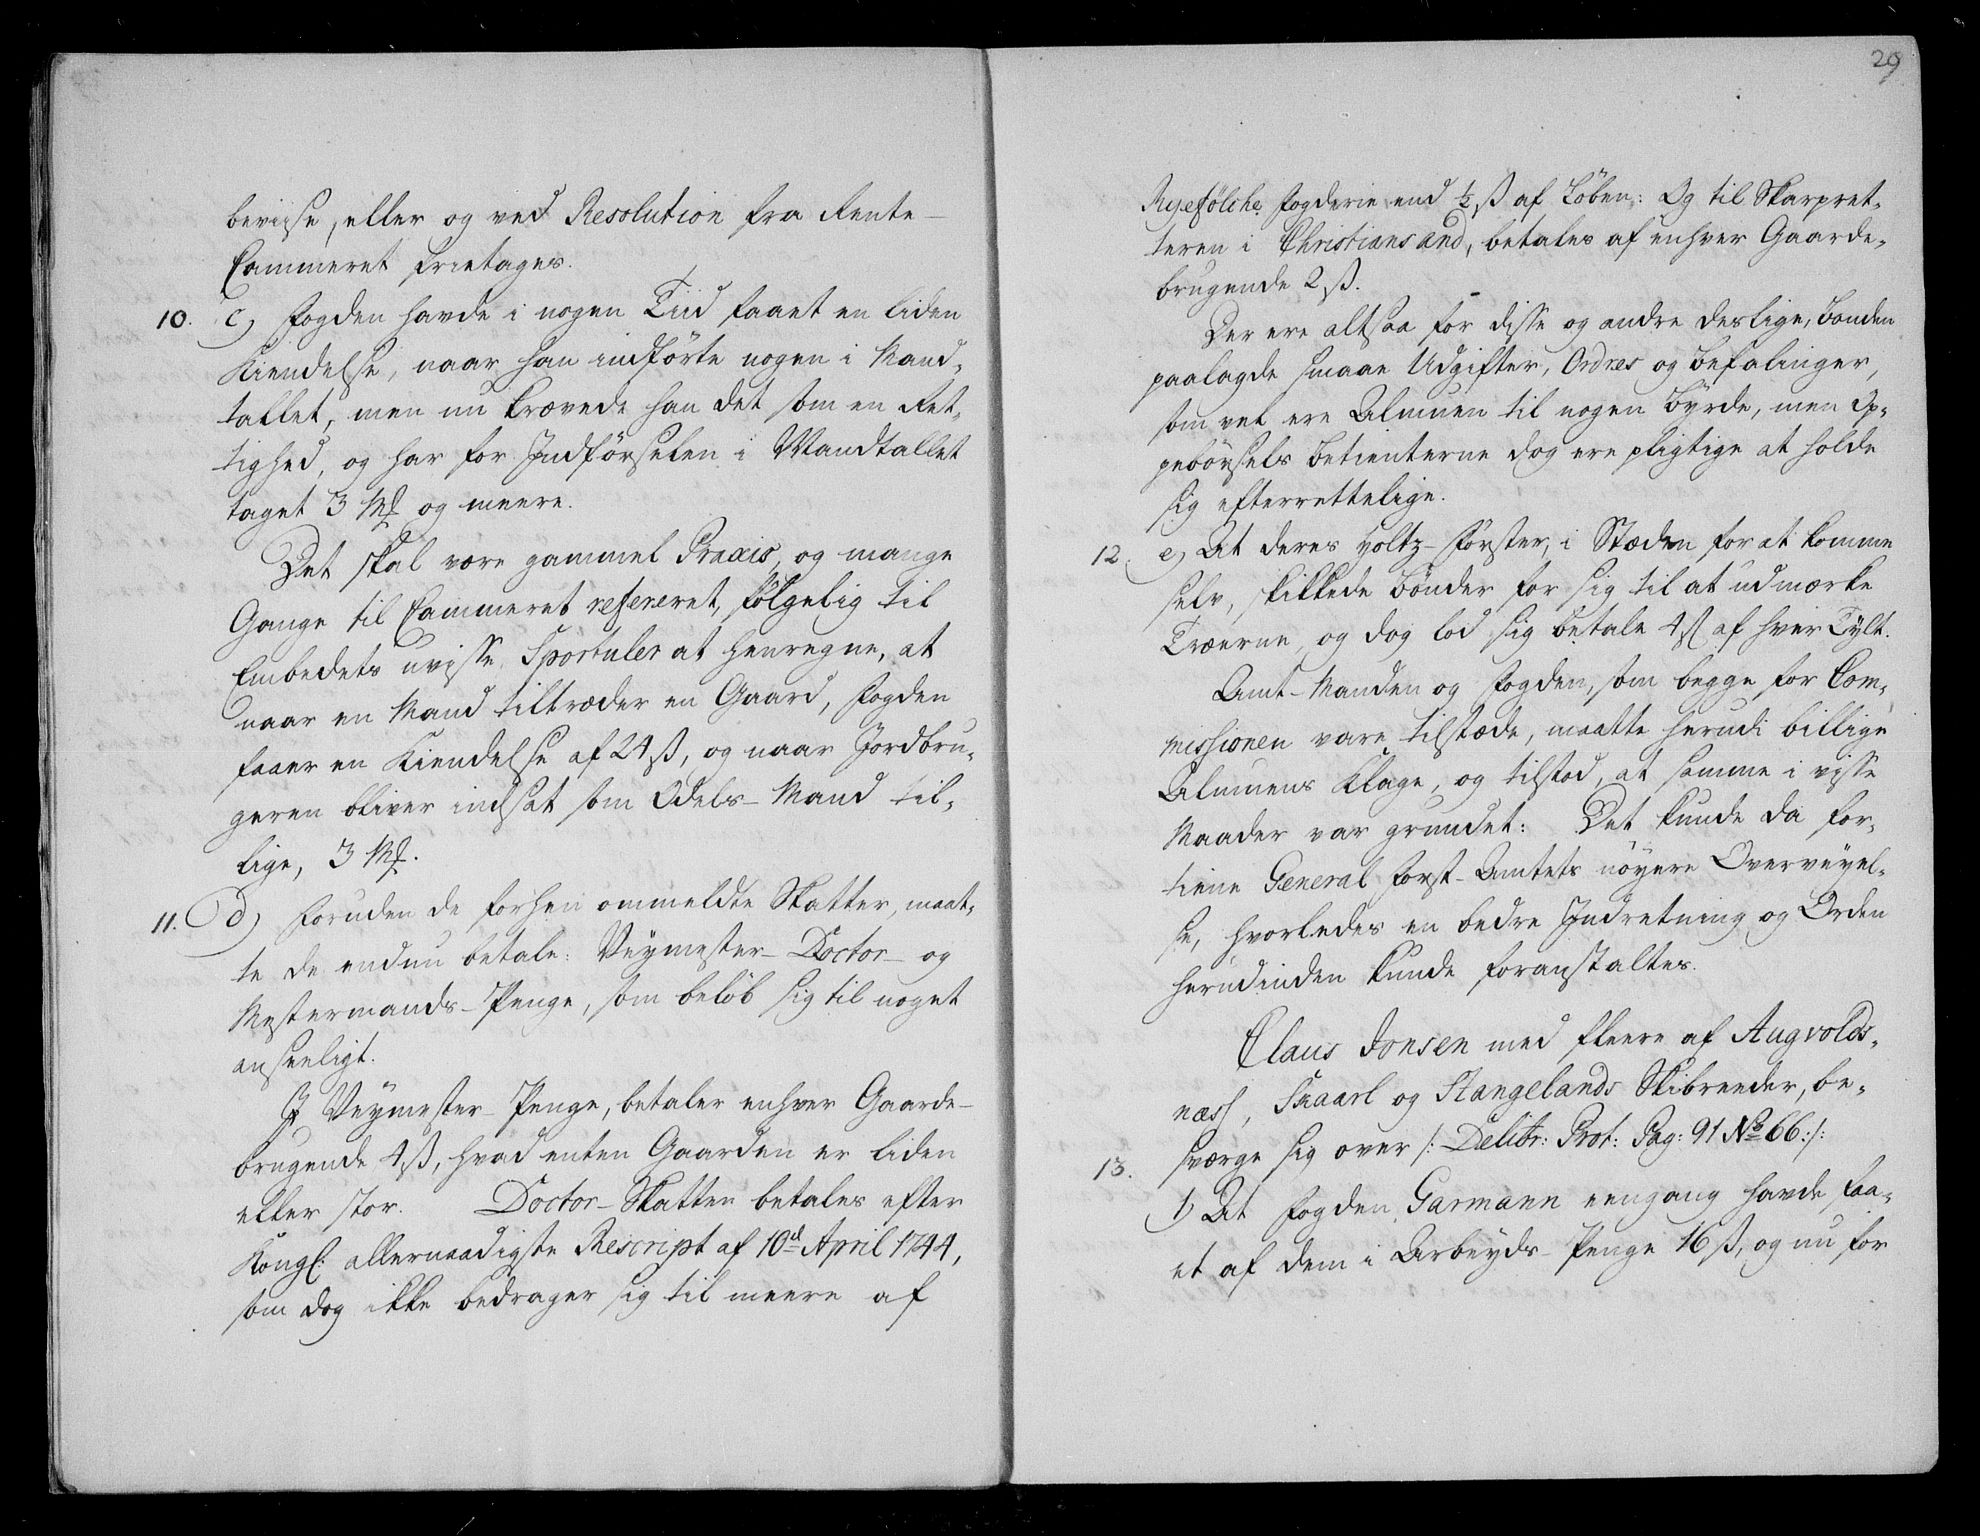 beviise, eller og ved Resolution fra Rente-
Cammeret frietages.
10. c) Fogden havde i nogen Tiid faaet en liden
Kiendelse, naar han indförte nogen i Mand-
tallet, men nu krævede han det som en Ret-
tighed, og har for Indförselen i Mandtallet
taget 3 Mk og meere.
Det skal være gammel Praxis, og mange
Gange til Cammeret refereret, fölgelig til
Embedets uvisse Sportuler at henregne, at
naar en Mand tiltræder en Gaard, Fogden
faaer en Kiendelse af 24 ß, og naar Jordbru-
geren bliver indsat som Odels-Mand til-
lige, 3 Mk.
11. d) Foruden de forhen ommeldte Skatter, maat-
te de endnu betale: Veymester- Doctor- og
Mestermands-Penge, som belöb sig til noget
anseeligt.
I Veymester-Penge, betaler enhver Gaarde-
brugende 4 ß, hvad enten Gaarden er liden
eller stor. Doctor-Skatten betales efter
Kongl: allernaadigste Rescript af 10d April 1744,
som dog ikke bedrager sig til meere af
29
Ryefölche Fogderie end ½ ß af Löben: Og til Skarpret-
teren i Christiansand, betales af enhver Gaarde-
brugende 2 ß.
Der ere altsaa for disse og andre deslige, Bonden
paalagde smaae Udgifter, Ordres og Befalinger,
som vel ere Almuen til nogen Byrde, men Op-
pebörsels Betienterne dog ere pligtige at holde
sig efterrettelige.
12. e) At deres Holtz-Förster, i Stæden for at komme
selv, skikkede Bönder for sig til at udmærke
Træerne, og dog lod sig betale 4 ß af hver Tylt.
Amt-Manden og Fogden, som begge for Com-
missionen vare tilstæde, maatte herudi billige
Almuens Klage, og tilstod, at samme i visse
Maader var grundet: Det kunde da for-
tiene General Forst-Amtets nöyere Overveyel-
se, hvorledes en bedre Indretning og Orden
herudinden kunde foranstaltes.
Claus Jonsen med fleere af Augvolds-
næss, Skaarl og Stangelands Skibreeder, be-
sværge sig over /: Delibr: Prot: Pag: 91 No 66:/:
13. 1) At Fogden Garmann eengang havde faa-
et af dem i Arbeyds-Penge 16 ß, og nu for